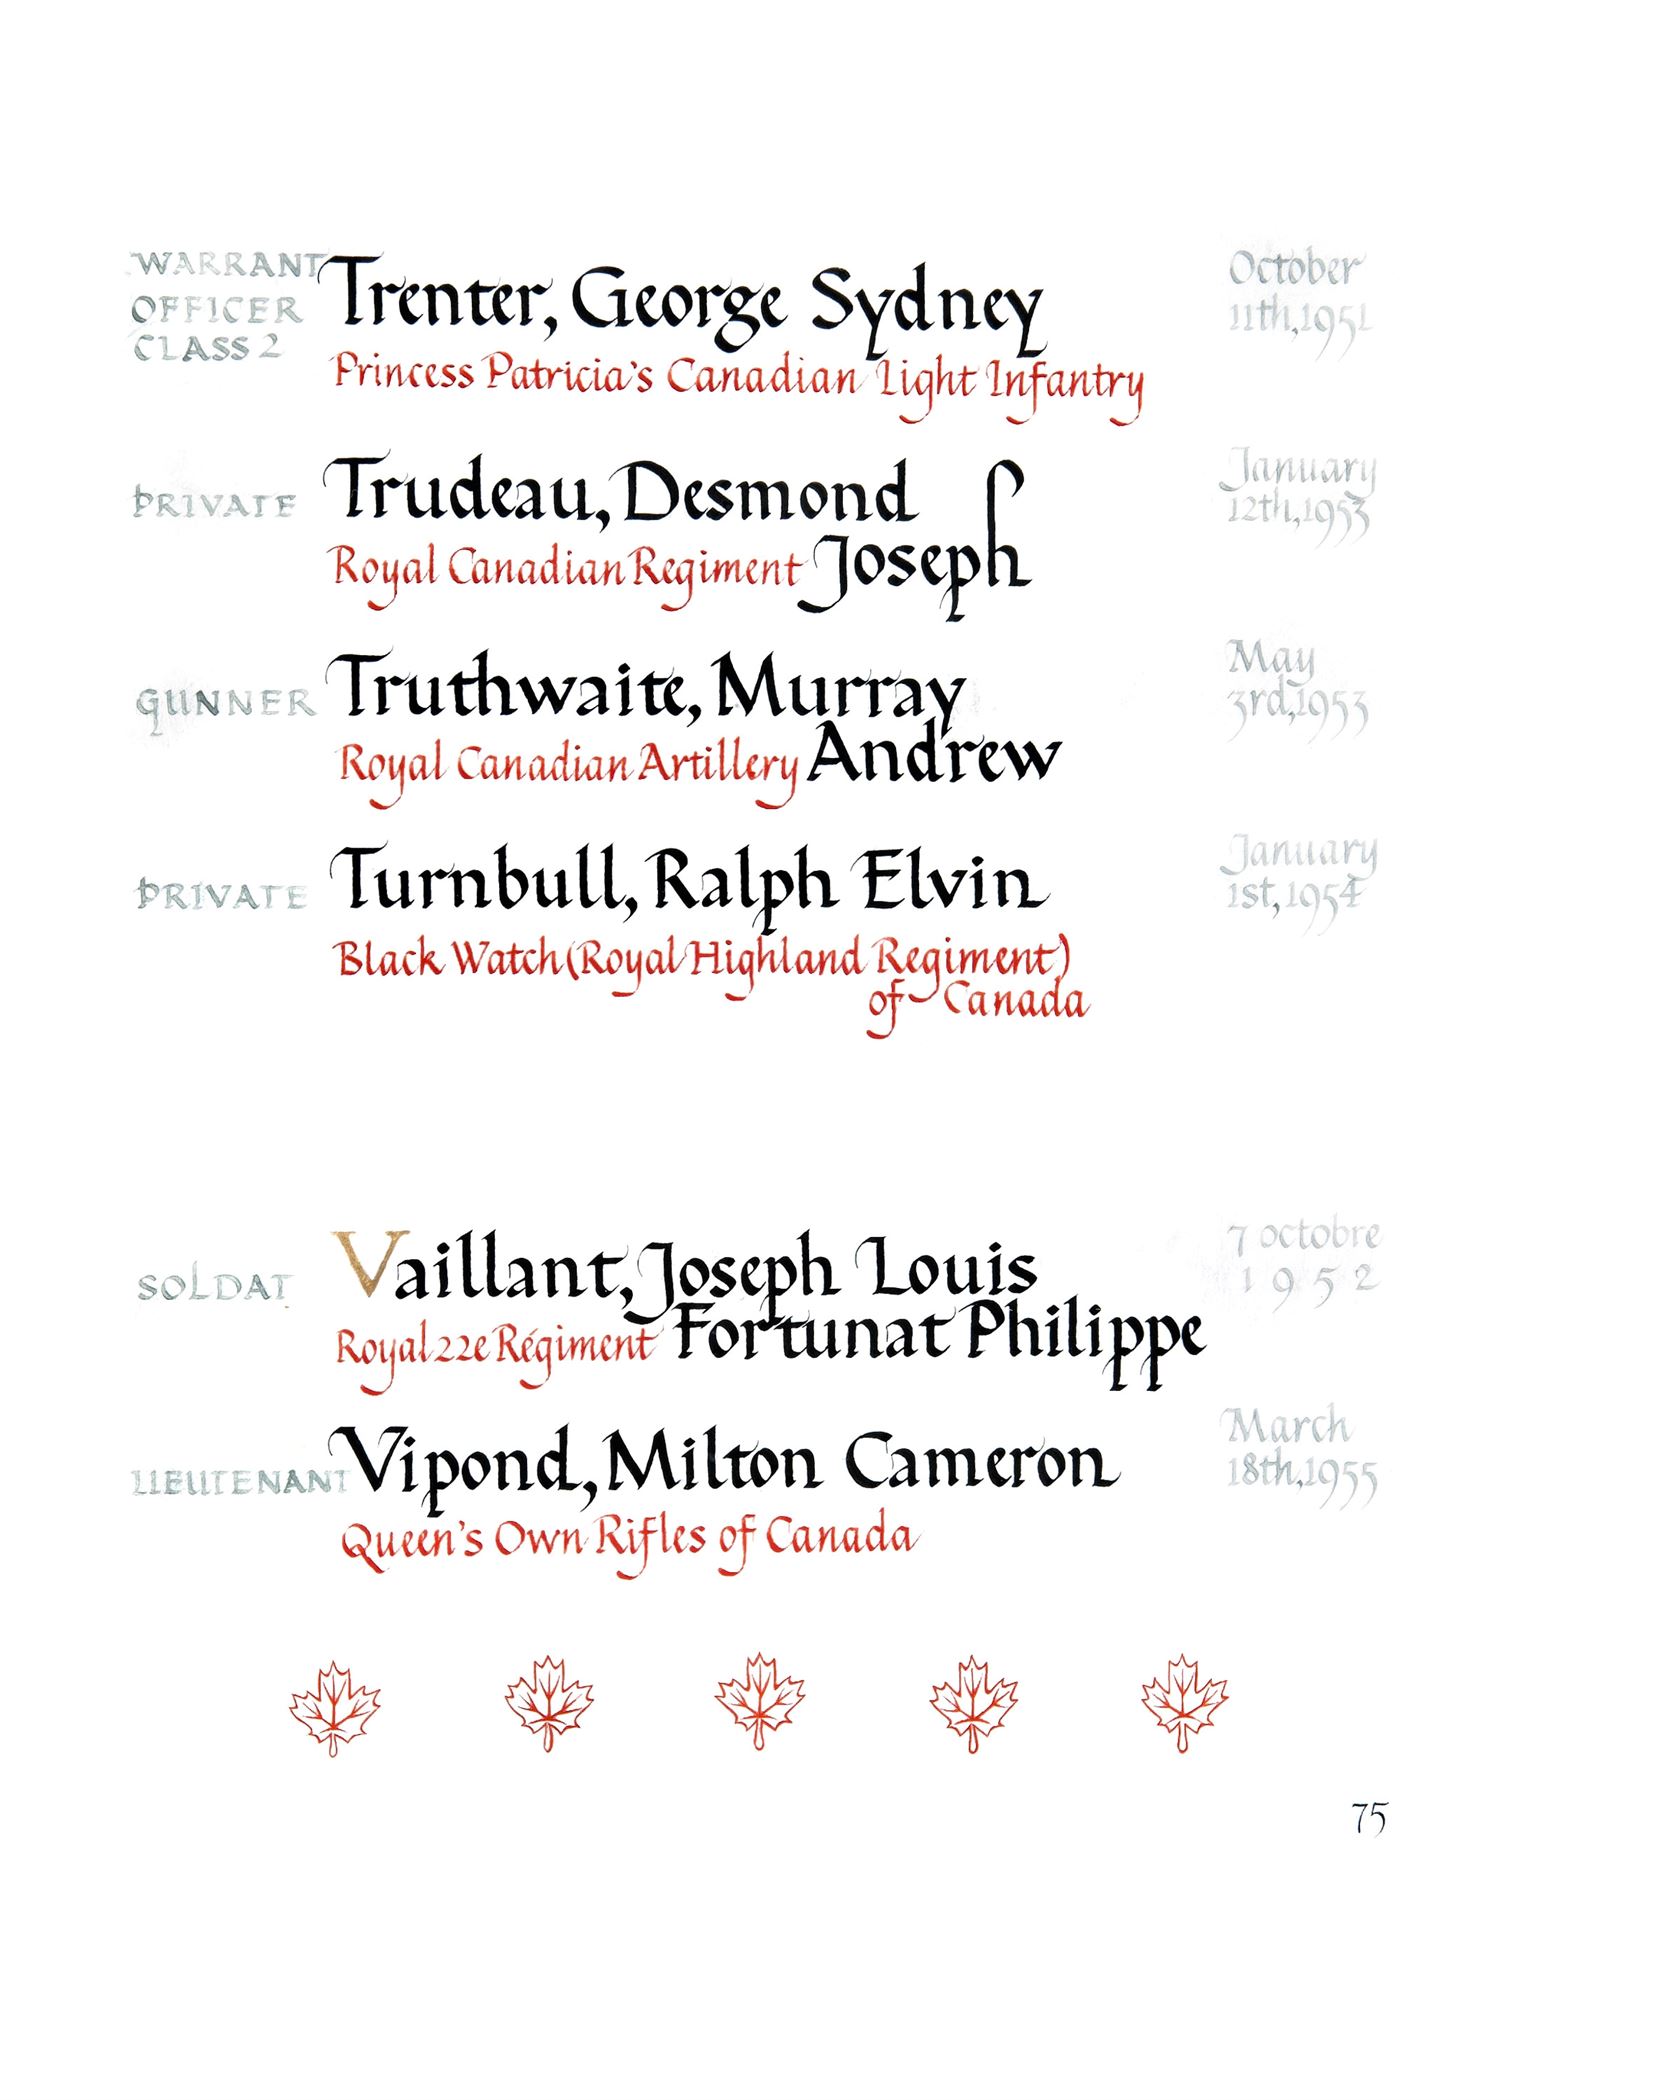 WARRANT
OFFICER
CLASS 2
Trenter, George Sydney
Princess Patricia's Canadian Light Infantry
October
11th, 1951
PRIVATE
Trudeau, Desmond
Royal Canadian Regiment Joseph
January
12th, 1953
GUNNER
Truthwaite, Murray
Royal Canadian Artillery Andrew
May
3rd, 1953
PRIVATE
Turnbull, Ralph Elvin
Black Watch (Royal Highland Regiment)
of Canada
January
1st, 1954
SOLDAT
Vaillant, Joseph Louis
Royal 22e Régiment Fortunat Philippe
7 octobre
1952
LIEUTENANT
Vipond, Milton Cameron
Queen's Own Rifles of Canada
March
18th, 1955
75